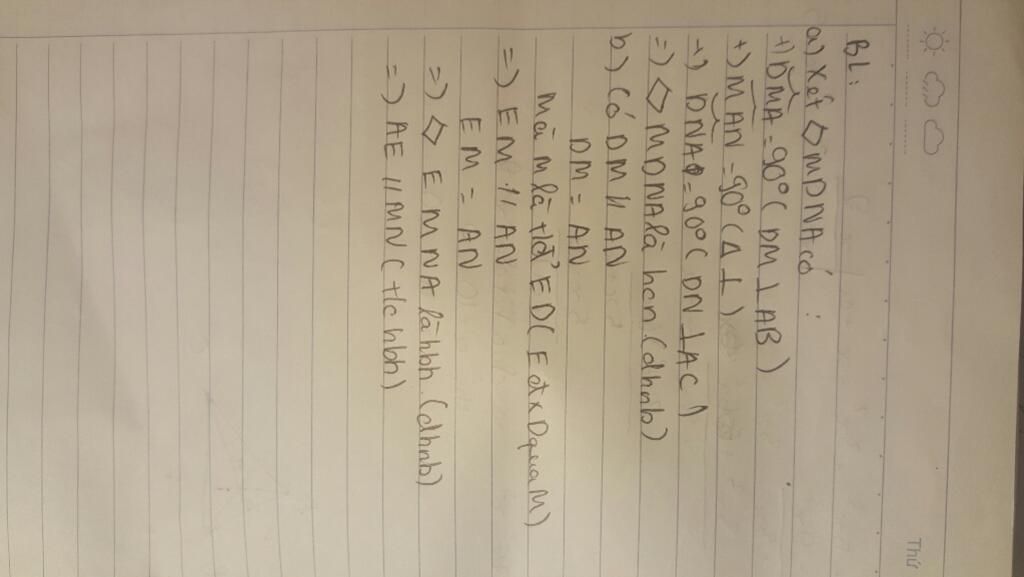 Thứ
BL:
a) Xét ◇ MDNA có :
+) DMA = 90° ( DM ⊥ AB )
+) MAN = 90° ( Δ ⊥ )
+) DNA = 90° ( DN ⊥ AC )
=) ◇ MDNA là hcn (dhnb)
b) Có DM // AN
DM = AN
Mà M là tđ' ED ( E đx D qua M )
=) EM // AN
EM = AN
=) ◇ EMNA là hbh (dhnb)
=) AE // MN ( t/c hbh )